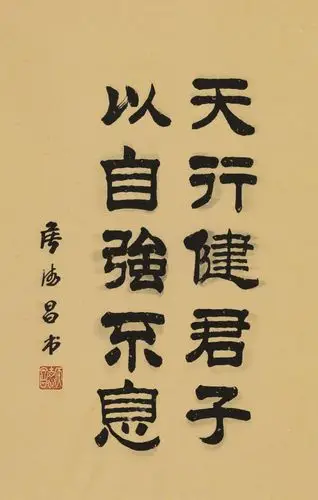 天行健君子
以自強不息
侯德昌书